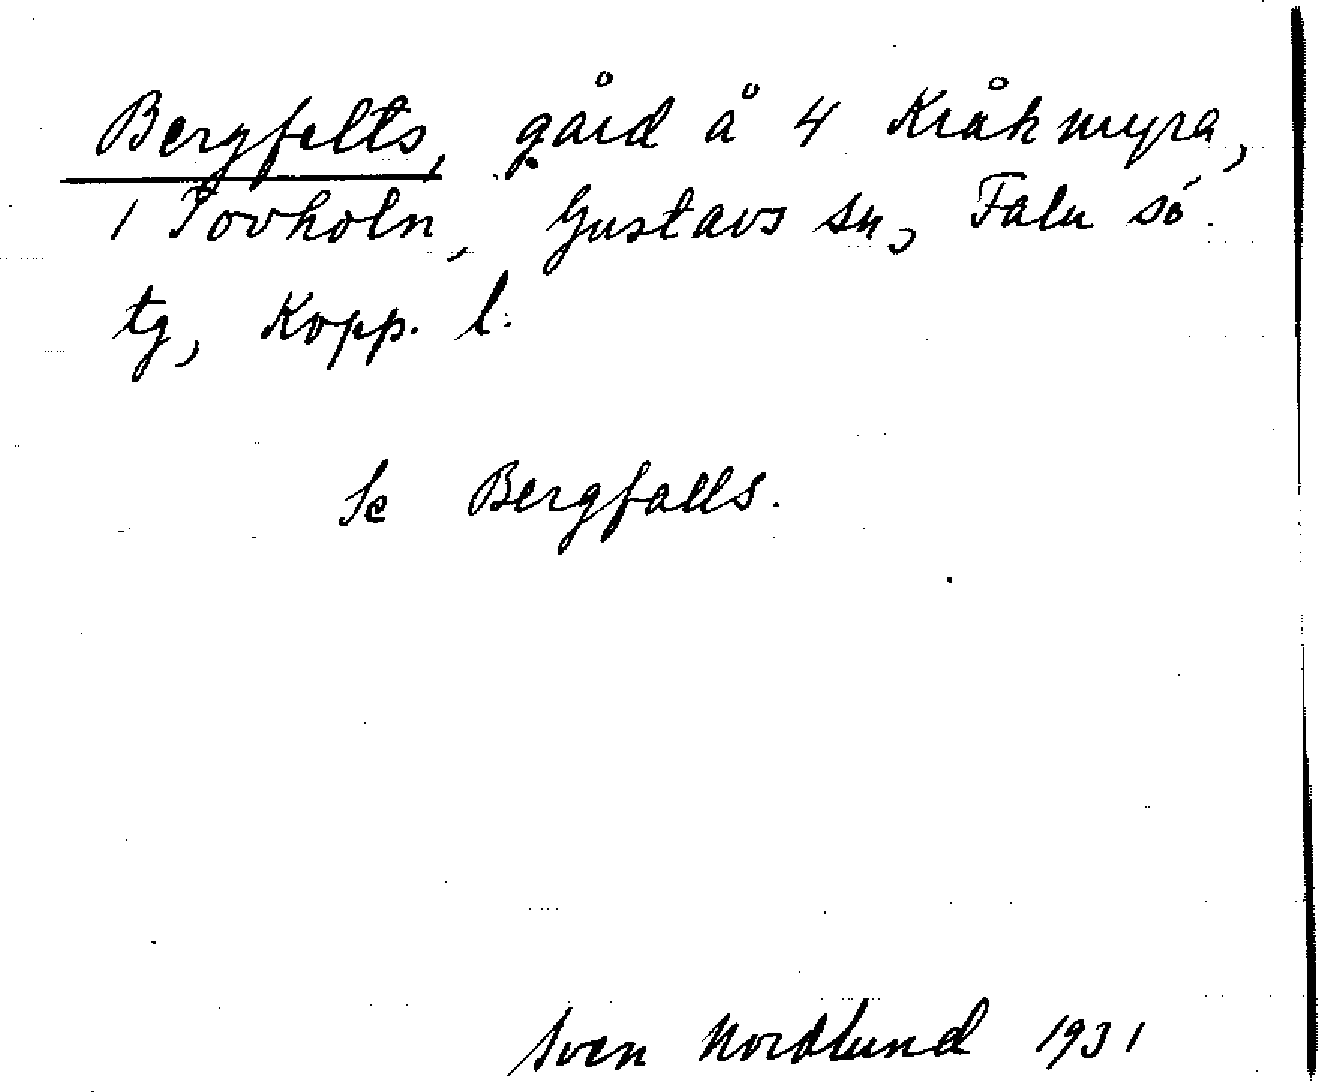 Bergfelts, gård å 4 Kråkmyra,
1 Tovholn, Gustavs sn, Falu sö.
tg, Kopp. l.
Se Bergfalls.
Sven Nordlund 1931